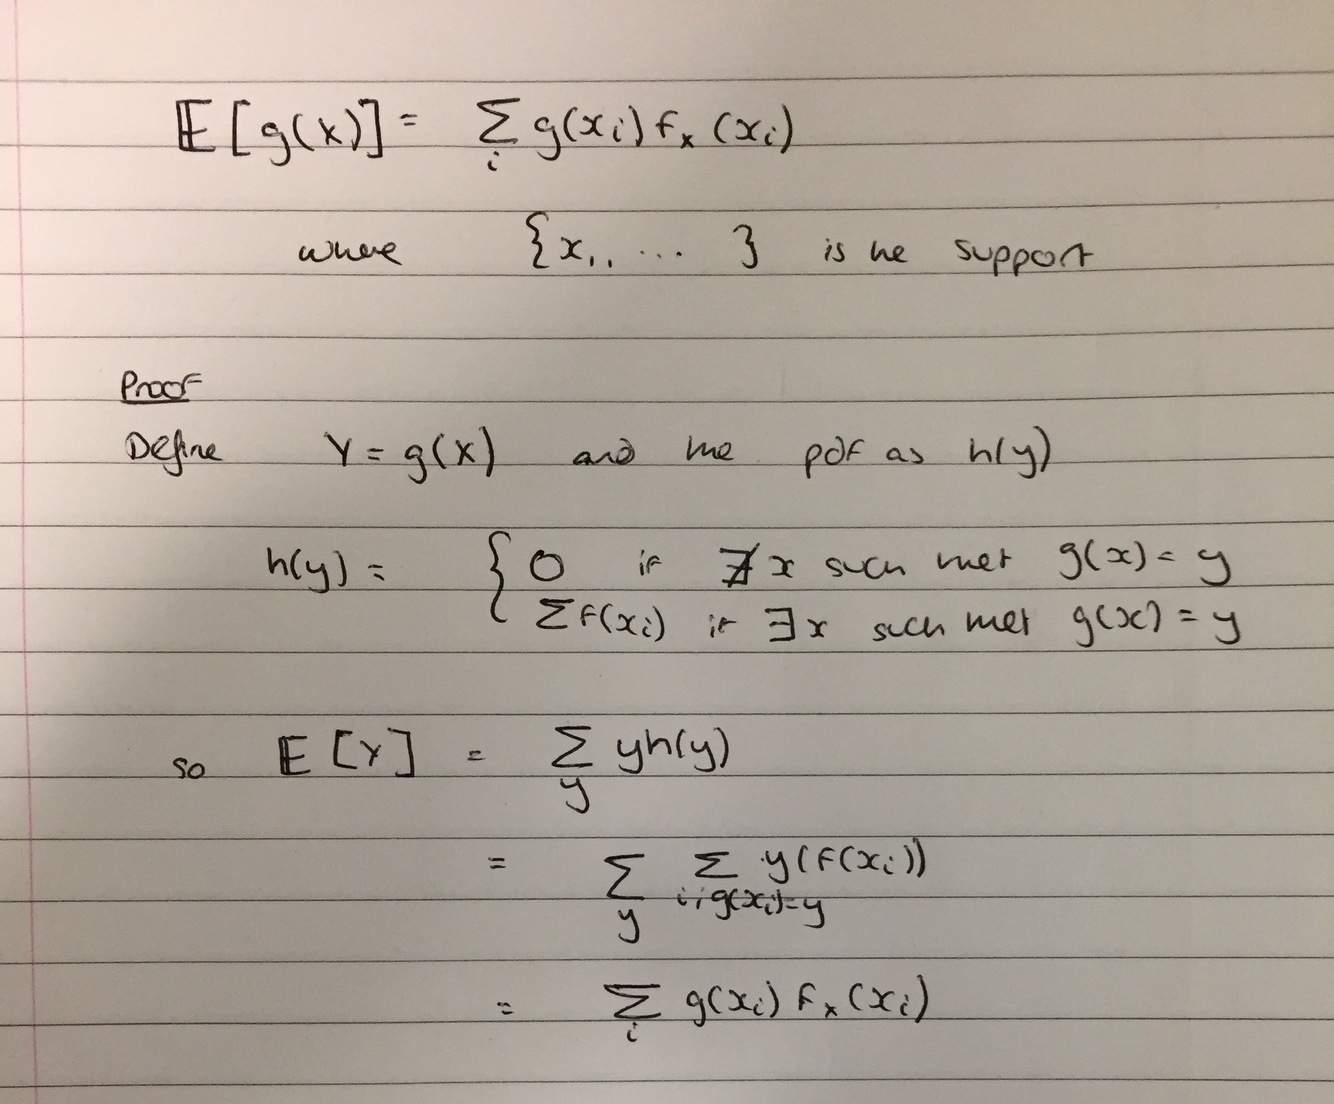 𝔼[g(X)] = Σ_i g(x_i) f_x (x_i)
where {x_1, ... } is he support
Proof
Define Y = g(X) and the pdf as h(y)
h(y) = { 0 if ∄ x such that g(x) = y
Σ f(x_i) if ∃ x such that g(x) = y
so 𝔼[Y] = Σ_y yh(y)
= Σ_y Σ_{i; g(x_i)=y} y(f(x_i))
= Σ_i g(x_i) f_x (x_i)